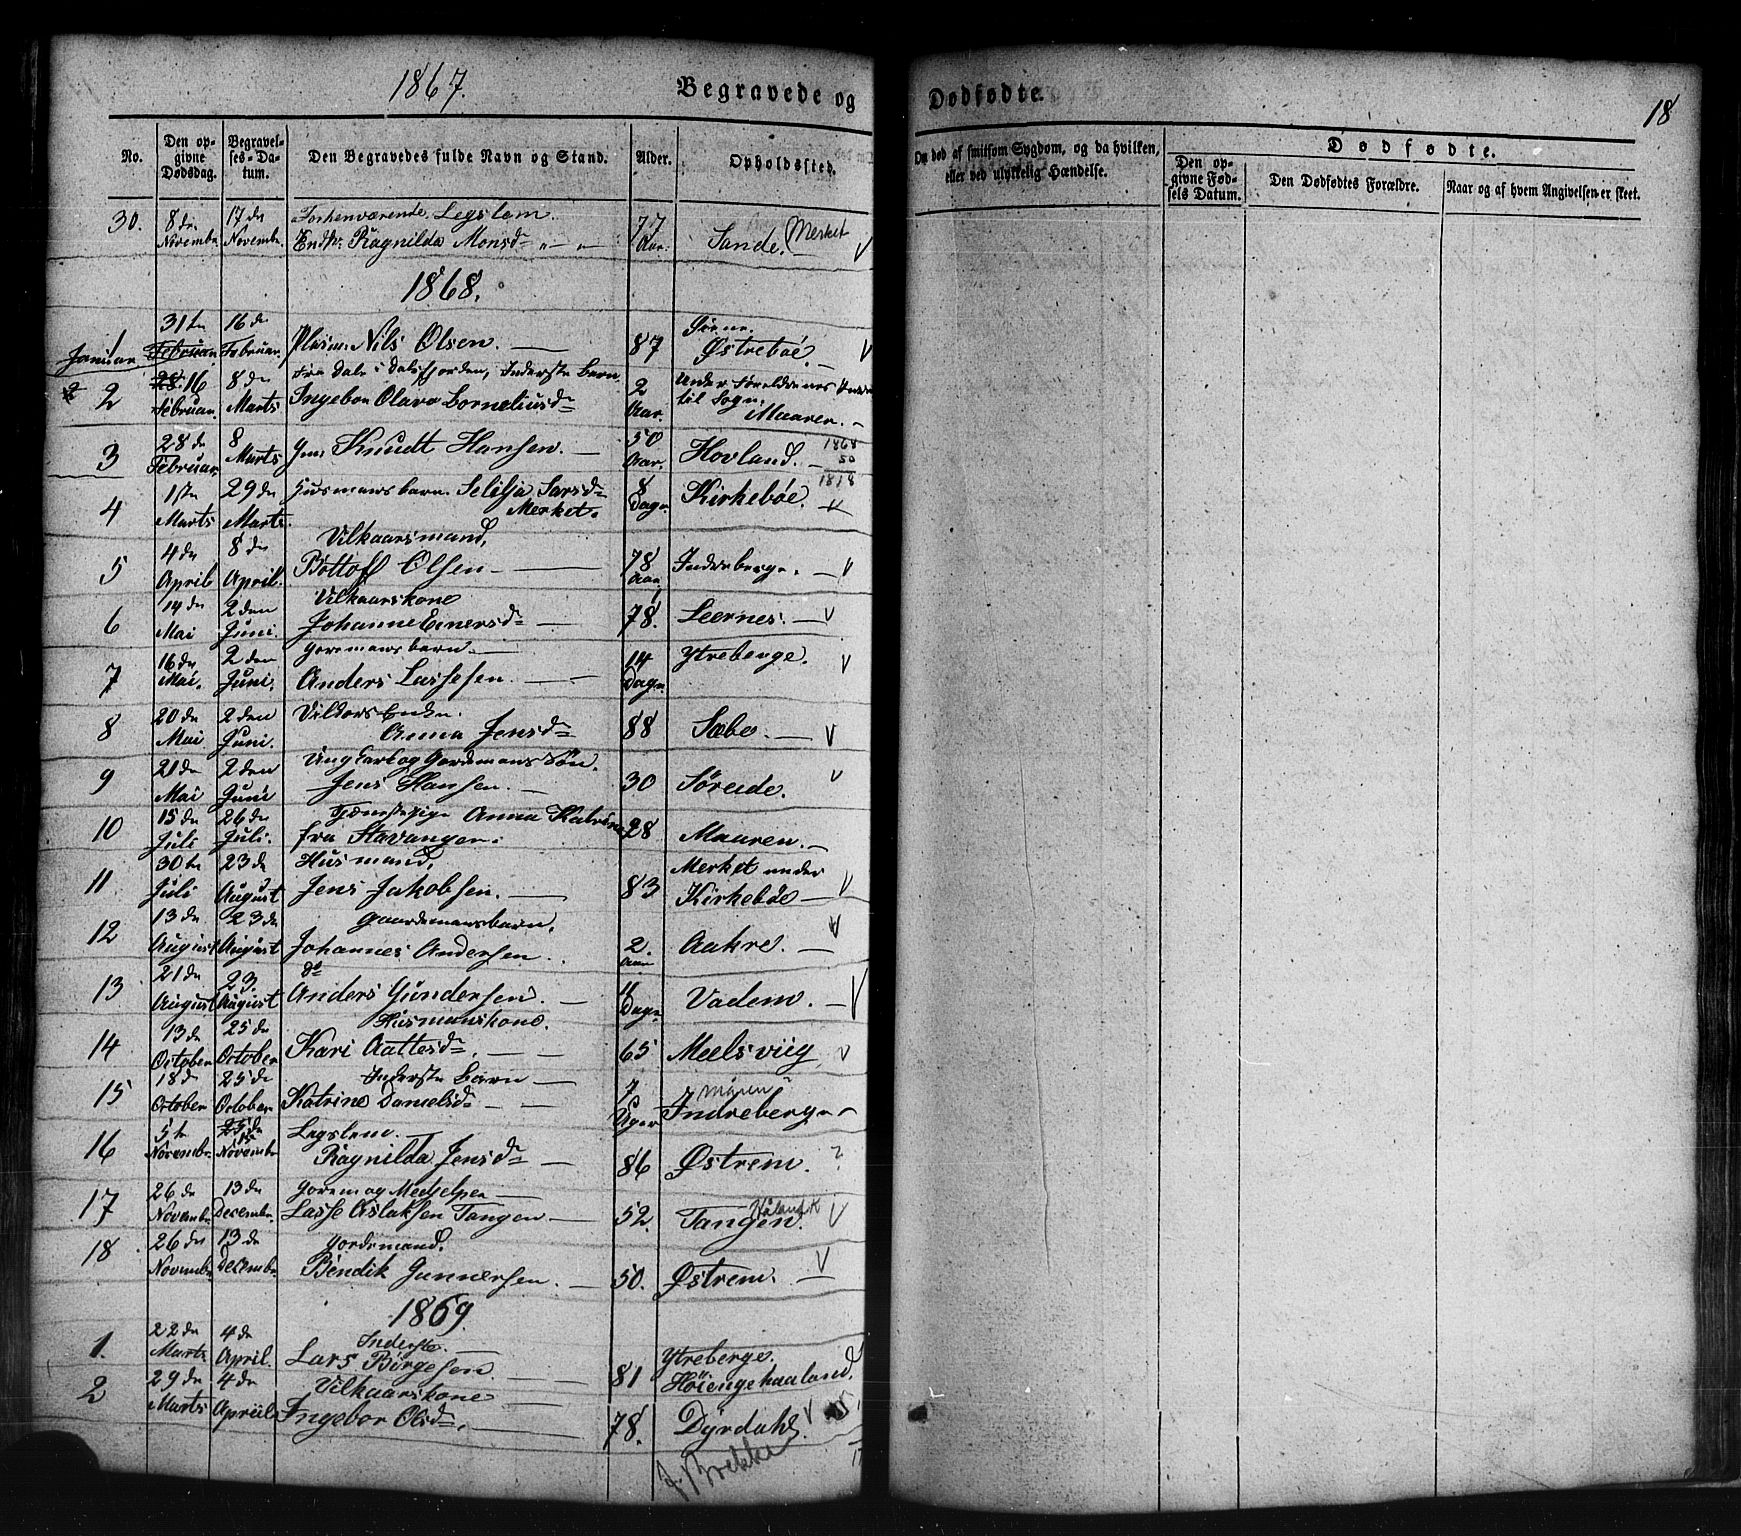 1867.
Begravede og
Dødfødte.
18
No.
Den opgivne Dødsdag.
Begravelses-Datum.
Den Begravedes fulde Navn og Stand.
Alder.
Opholdssted.
Om død af smitsom Sygdom, og da hvilken, eller ved ulykkelig Hændelse.
Dødfødte.
Den opgivne Fødsels Datum.
Den Dødfødtes Forældre.
Naar og af hvem Angivelsen er skeet.
30. 8de Novembr. 17de Novembr. Forhenværende Legslem
Enke Ragnilda Monsdr 77 Aar. Sande. Merket
1868.
Januar 31te Februar 16de Februar. Nils Olsen. 87 Østrebøe.
2 28. 16 Februar. 8de Marts Fra Dale i Dalsfjorden, Inderste Barn
Ingebor Olava Corneliusdr 2 Aar. Under Forældrenes
til Sogn. Maaren.
3 28de Februar. 8 Marts Knudt Hansen. 50 Aar. Hovland. 1868 50 1818
4 1ste Marts 29de Marts. Husmansbarn. Larsdr
Merket. 8 Dage Kirkebøe.
5 4de April 8de April. Vilkaarsmand,
Bottolf Olsen 78 Aar Indreberge.
6 14de Mai 2den Juni. Vilkaarskone
Johanne Einersdr 78. Leernes.
7 16de Mai. 2den Juni. Goremansbarn
Anders Lassesen. 14 Dage Ytreberge.
8 20de Mai 2den Juni. Enke.
Anna Jensdr 88 Sæbø.
9 21de Mai 2den Juni Ungkarl og Gordmans Søn.
Jens Hansen. 30 Søreide.
10 15de Juli 26de Juli. Anna Katrine
fra Stavanger. 28 Maaren.
11 30te Juli 23de August Husmand,
Jens Jakobsen 83 Merket under Kirkebøe
12 13de August 23de August Gaardmansbarn,
Johannes Andersen. 2 Aar Aakre.
13 21de August 23. August do
Anders Gundersen. 11 Dage Vadem.
14 13de October 25de October Husmanskone.
Kari Aattesdr. 65 Meelsviig
15 18de October 25de October Inderste Barn
Katrine Danielsdr 7 Uger Indreberge
16 5te Novembr. 15 Novembr Legslem.
Ragnilda Jensdr 86 Østrem. ?
17 26de Novembr. 13de Decembr. Gorem og Medhjelper
Lasse Aslaksen Tangen 52. Tangen.
18 26de Novembr. 13de Decembr. Gordmand.
Bendik Gunnersen. 50. Østrem.
1869
1. 22de Marts 4de April. Inderste
Lars Børgesen 81 Ytreberge.
Høiengehaaland.
2 29de Marts 4de Apriil Vilkaarskone
Ingebor Olsdr. 78. Dyrdahl.